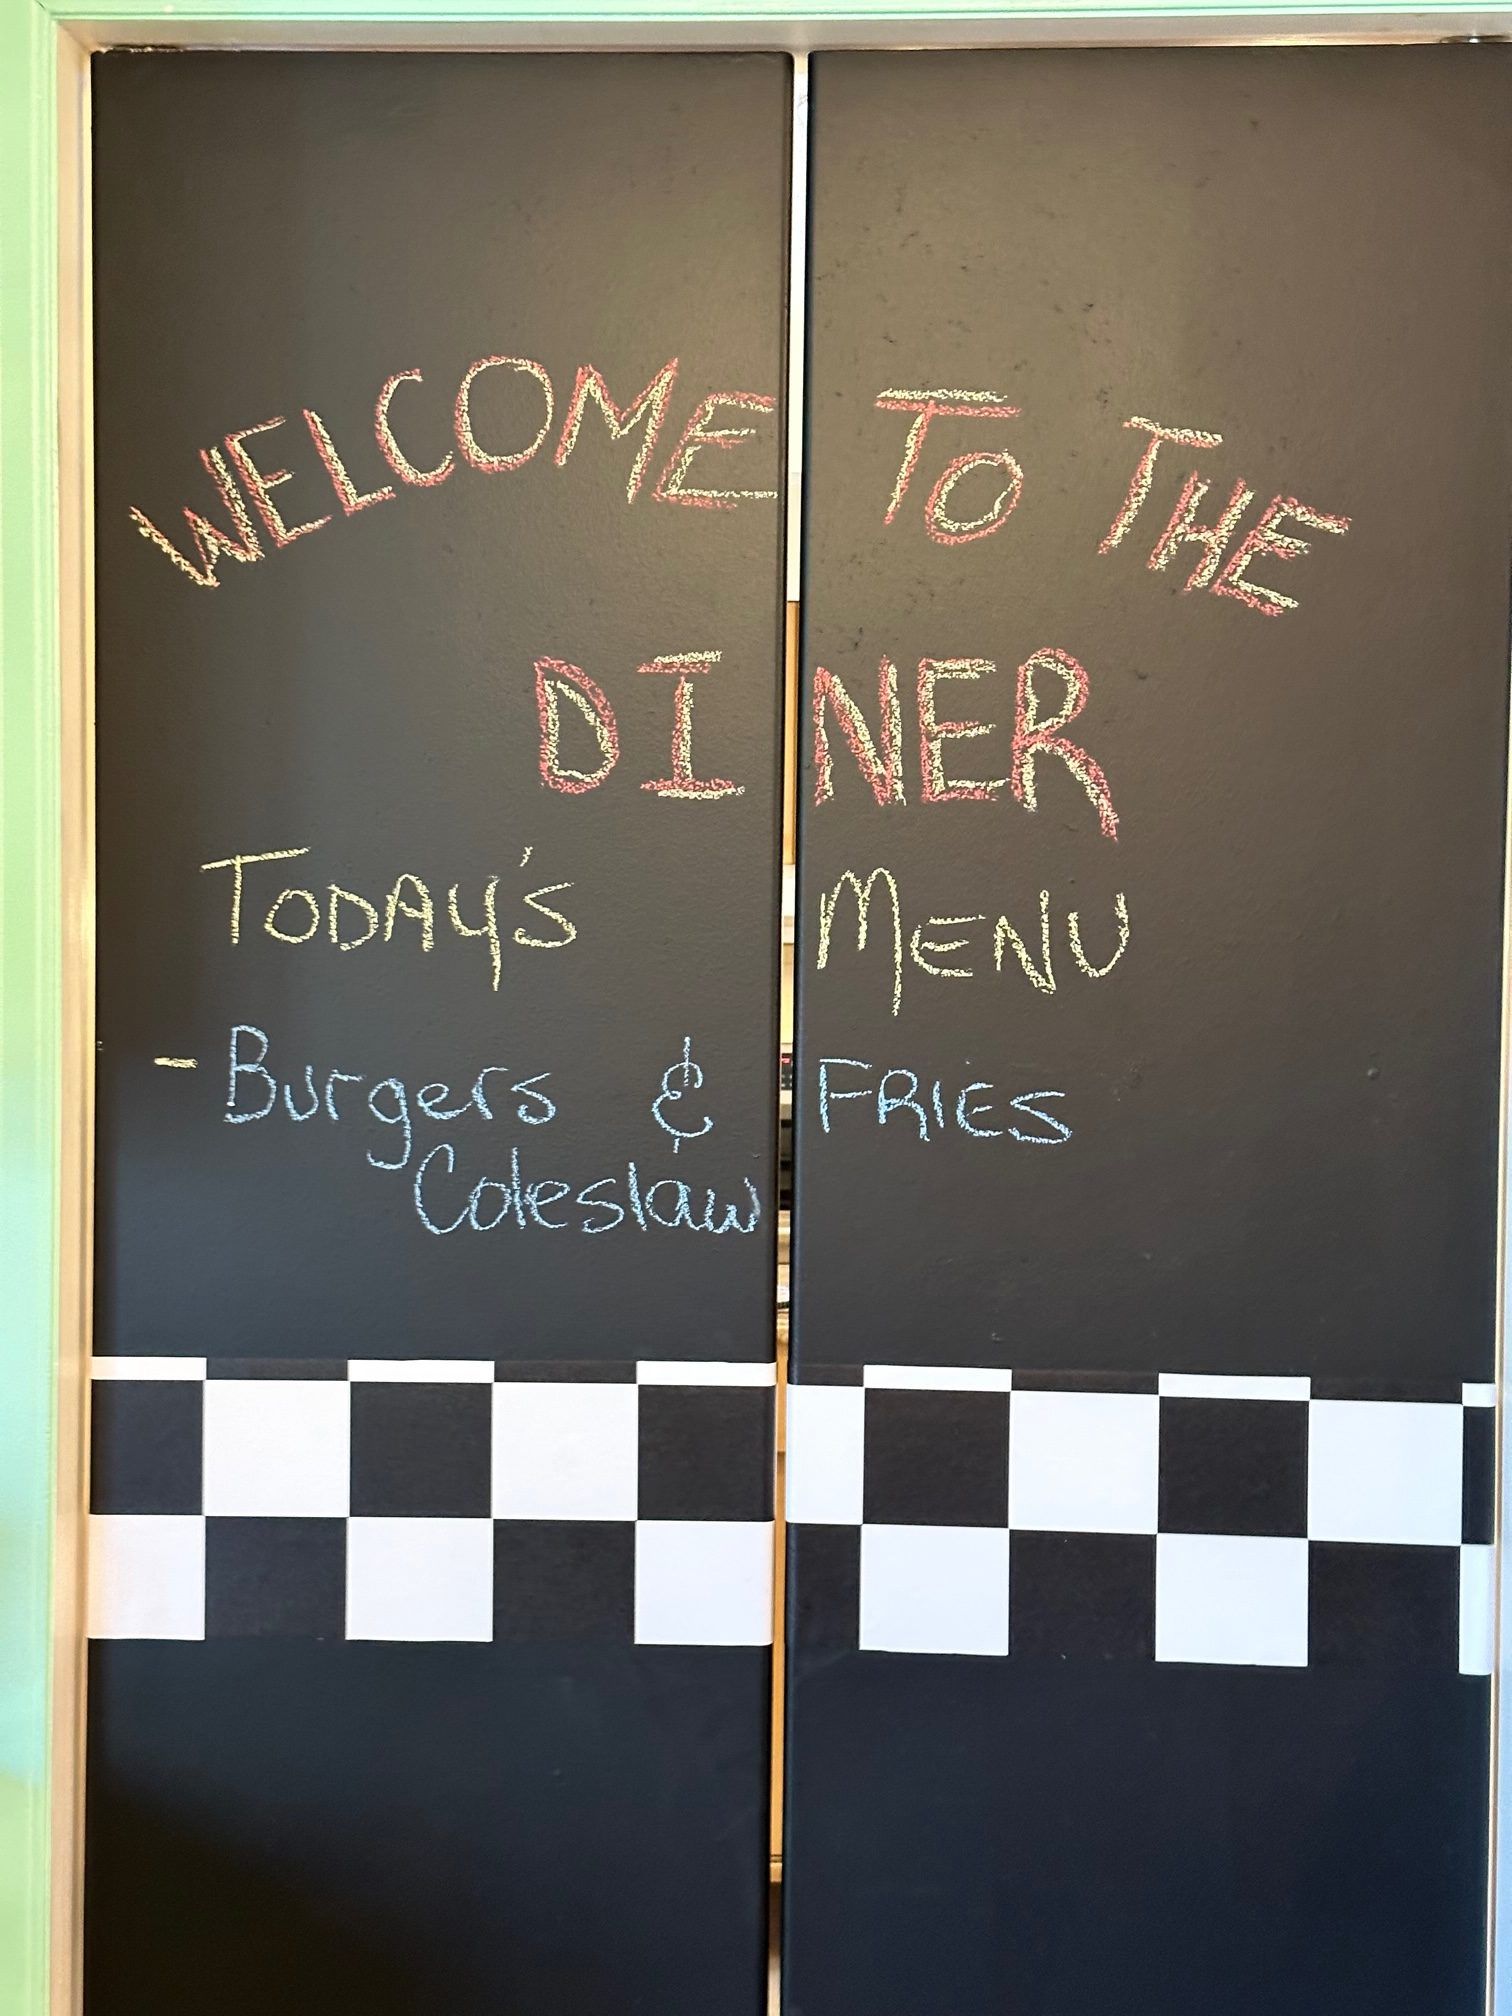 WELCOME TO THE
DINER
TODAY'S MENU
- Burgers & FRIES
Coleslaw